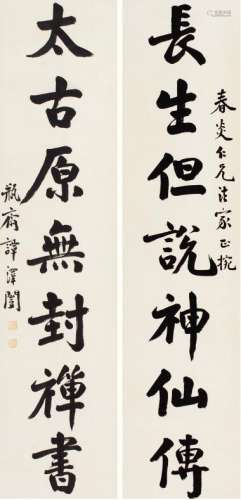 長生但說神仙傳
春炎仁兄法家正挽
太古原無封禪書
瓶齋譚澤闓